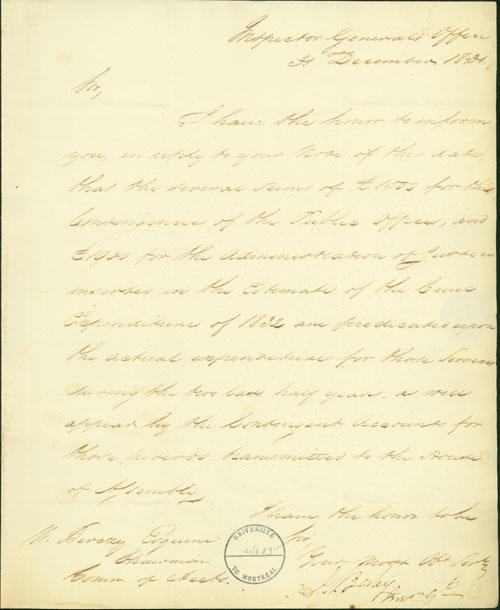 Inspector Generals Office
31 December 1831
Sir,
I have the honor to inform
you, in reply to your Note of this date,
that the several sums of for the
Contingencies of the Public Offices, and
£1900 for the Administration of Justice
inserted in the Estimate of the Civil
Expenditure of 1832 are predicated upon
the actual expenditure for those Services
during the two last half years, as will
appear by the Contingent Accounts for
those periods transmitted to the House
of Assembly
I have the honor to be
Sir,
Your most Obt Servt
Insp Gl
W. Berczy Esquire
Chairman
Comm of Accts.
UNIVERSITÉ
DE MONTRÉAL